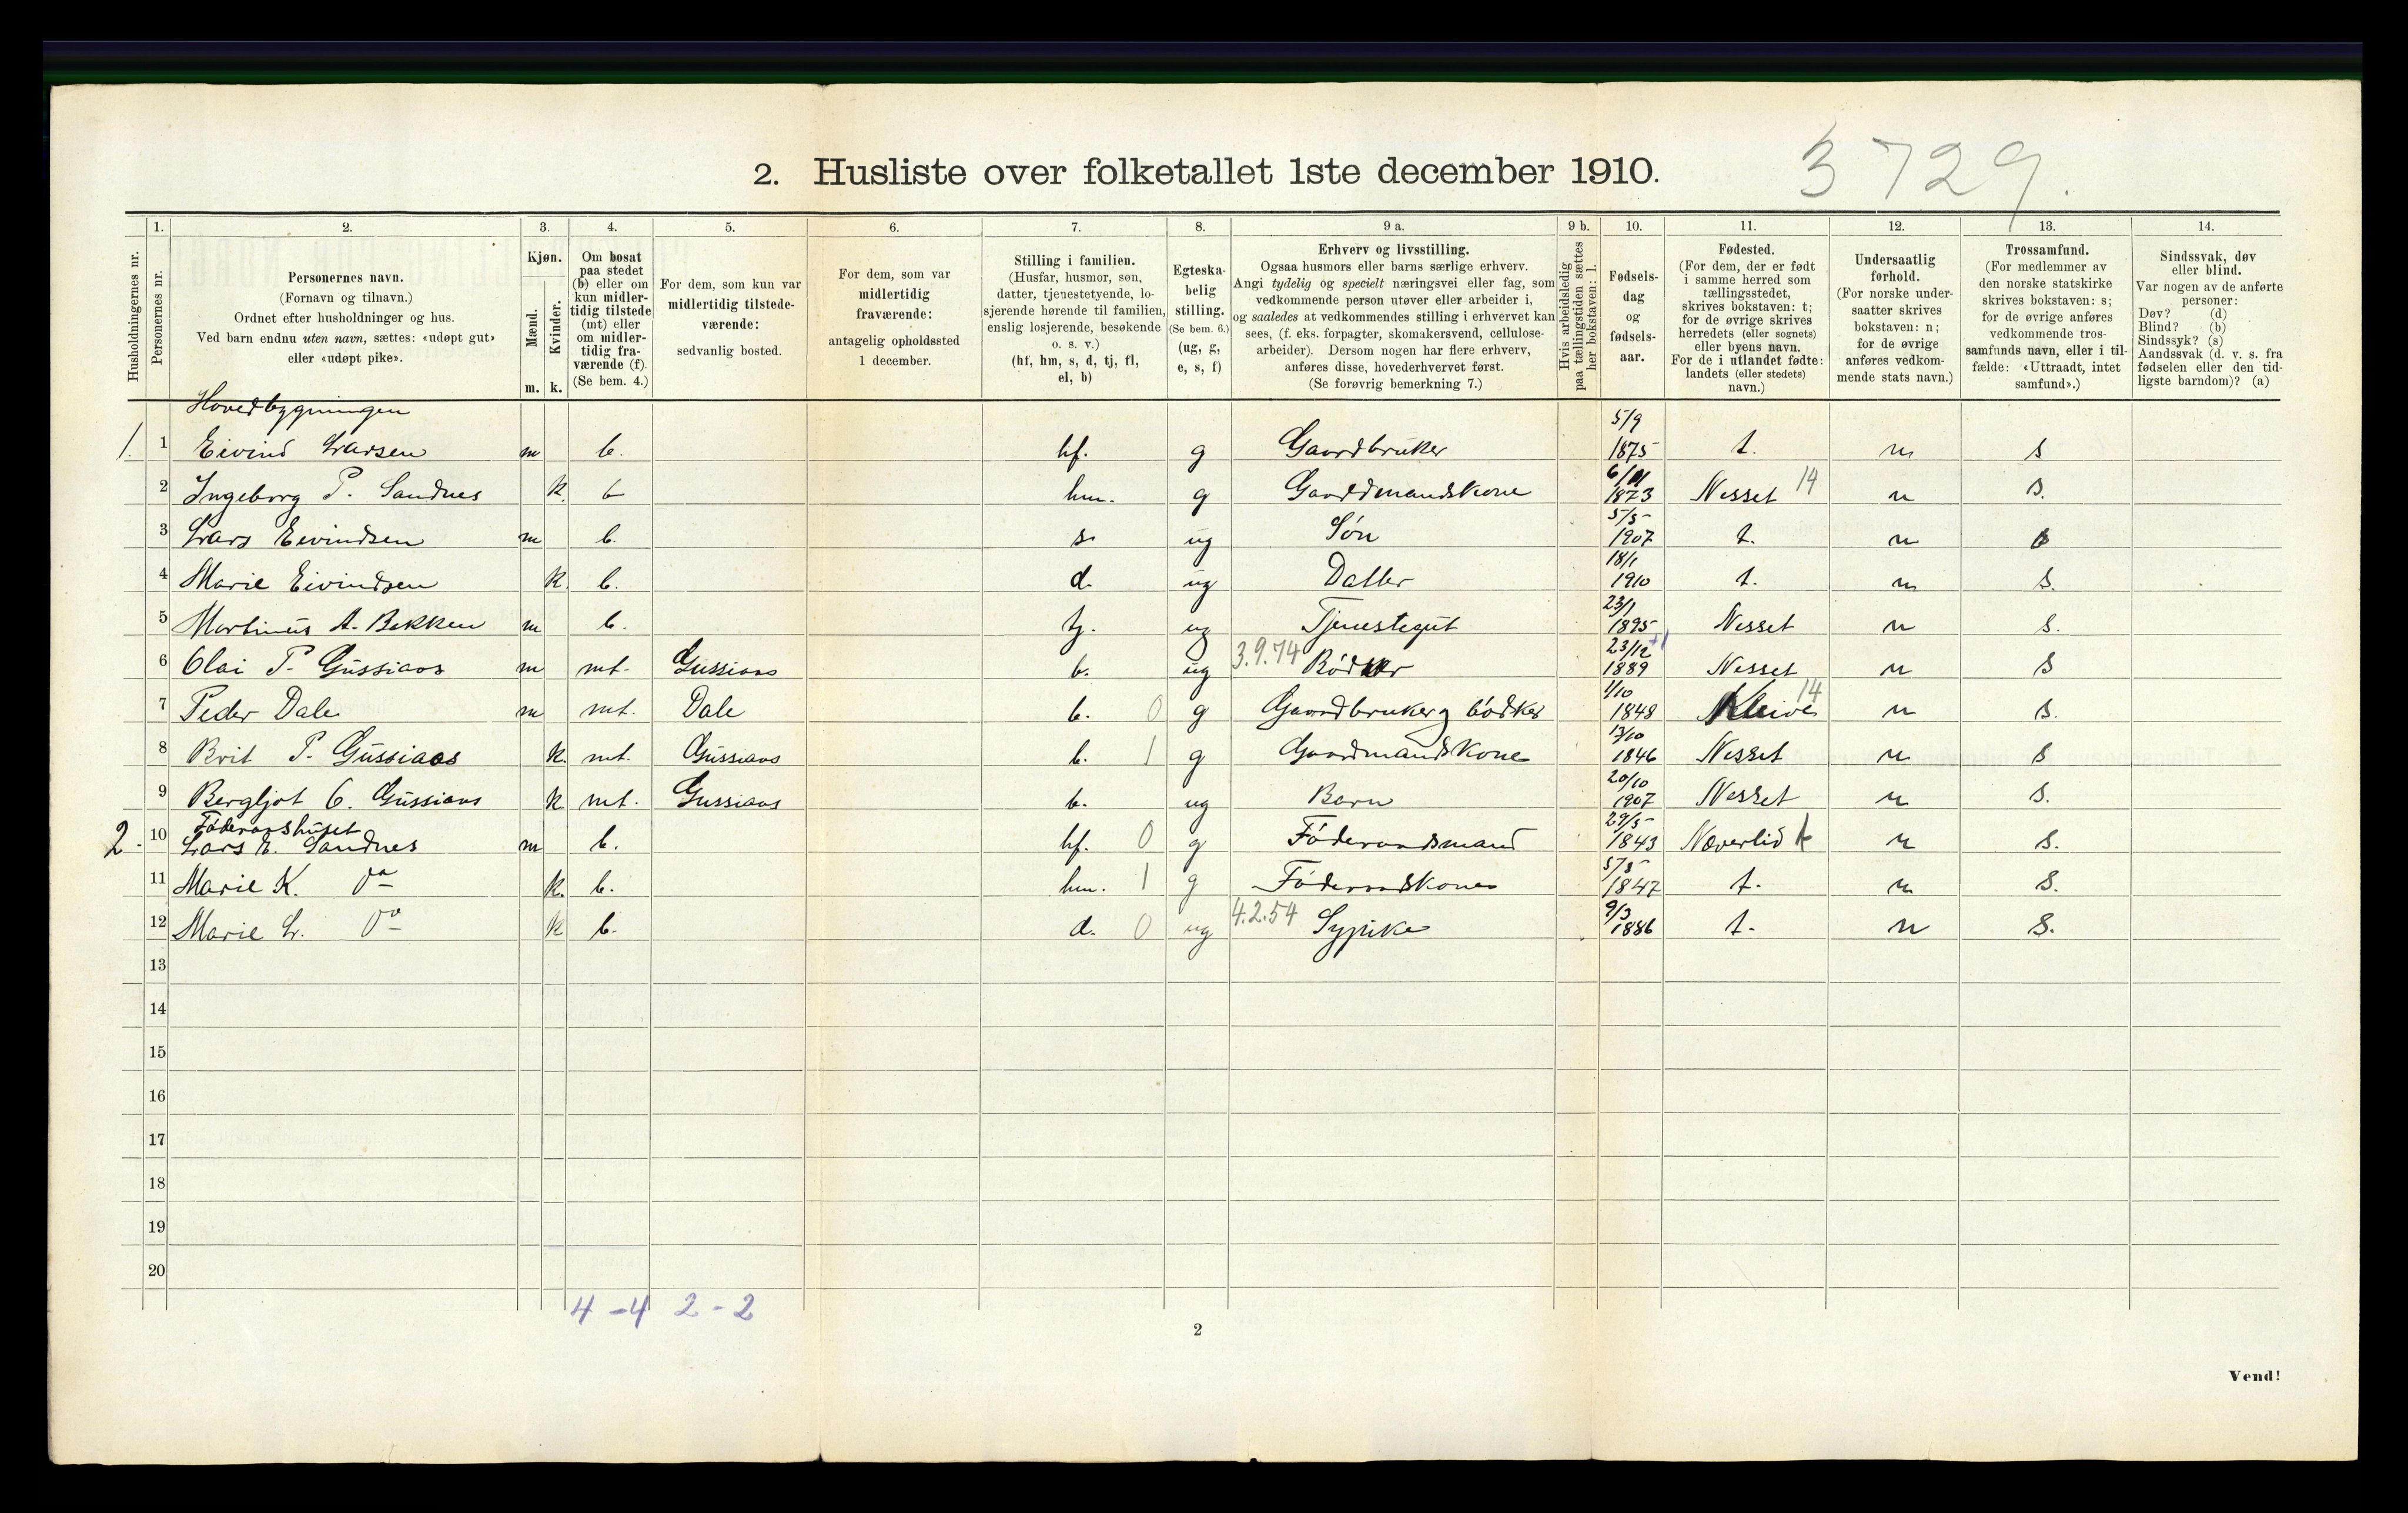 3729.
2. Husliste over folketallet 1ste december 1910.
Husholdningernes nr.
1. Personernes nr.
2. Personernes navn. (Fornavn og tilnavn.) Ordnet efter husholdninger og hus. Ved barn endnu uten navn, sættes: «udøpt gut» eller «udøpt pike».
3. Kjøn. Mænd. m. Kvinder. k.
4. Om bosat paa stedet (b) eller om kun midlertidig tilstede (mt) eller om midlertidig fraværende (f). (Se bem. 4.)
5. For dem, som kun var midlertidig tilstedeværende: sedvanlig bosted.
6. For dem, som var midlertidig fraværende: antagelig opholdssted 1 december.
7. Stilling i familien. (Husfar, husmor, søn, datter, tjenestetyende, losjerende hørende til familien, enslig losjerende, besøkende o. s. v.) (hf, hm, s, d, tj, fl, el, b)
8. Egteskabelig stilling. (Se bem. 6.) (ug, g, e, s, f)
9 a. Erhverv og livsstilling. Ogsaa husmors eller barns særlige erhverv. Angi tydelig og specielt næringsvei eller fag, som vedkommende person utøver eller arbeider i, og saaledes at vedkommendes stilling i erhvervet kan sees, (f. eks. forpagter, skomakersvend, cellulosearbeider). Dersom nogen har flere erhverv, anføres disse, hovederhvervet først. (Se forøvrig bemerkning 7.)
9 b. Hvis arbeidsledig paa tællingstiden sættes her bokstaven: l.
10. Fødselsdag og fødselsaar.
11. Fødested. (For dem, der er født i samme herred som tællingsstedet, skrives bokstaven: t; for de øvrige skrives herredets (eller sognets) eller byens navn. For de i utlandet fødte: landets (eller stedets) navn.)
12. Undersaatlig forhold. (For norske undersaatter skrives bokstaven: n; for de øvrige anføres vedkommende stats navn.)
13. Trossamfund. (For medlemmer av den norske statskirke skrives bokstaven: s; for de øvrige anføres vedkommende trossamfunds navn, eller i tilfælde: «Uttraadt, intet samfund».)
14. Sindssvak, døv eller blind. Var nogen av de anførte personer: Døv? (d) Blind? (b) Sindssyk? (s) Aandssvak (d. v. s. fra fødselen eller den tidligste barndom)? (a)
Hovedbygningen
1. 1 Eivind Larsen m b. hf. g Gaardbruker 5/9 1875 t. n s
2 Ingeborg P. Sandnes k. b hm. g Gaardmandskone 1873 Nesset 14 n s.
3 Lars Eivindsen m b. s. ug Søn 5/5 1907 t. n s
4 Marie Eivindsen k. b. d. ug Datter 18/1 1910 t. n s.
5 Martinus A. Bekken m b. tj. ug Tjenestegut 23/1 1895 Nesset n s.
6 Olai P. Gussiaas m mt. Gussiaas b. ug 3.9.74 Bødker 23/12 1889 Nesset n s
7 Peder Dale m mt. Dale b. 0 g Gaardbruker og bødker 1/10 1848 Kleive 14 n s.
8 Brit P. Gussiaas k. mt. Gussiaas b. 1 g Gaardmandskone 13/10 1846 Nesset n s
9 Bergljot O. Gussiaas k mt. Gussiaas b. ug Barn 20/10 1907 Nesset n s.
Føderaashuset
2. 10 Lars E. Sandnes m b. hf. 0 g Føderaadsmand 29/5 1843 n s.
11 Marie K. Do k. b. hm. 1 g Føderaadskone 5/5 1847 t. n s.
12 Marie L. Do k b. d. 0 ug 4.2.54 Sypike 9/3 1886 t. n s.
13
14
15
16
17
18
19
20
4 - 4 2 - 2
2
Vend!